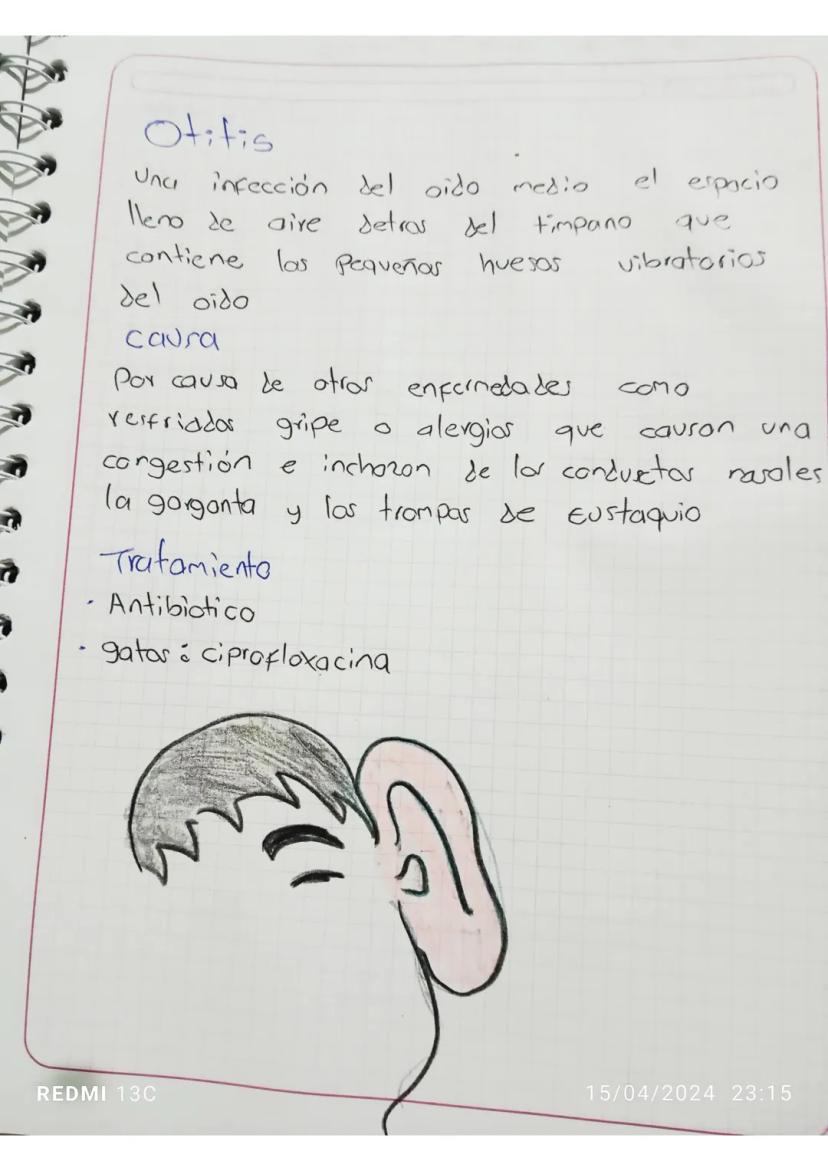 Otitis
Una infección del oido medio el espacio
lleno de aire detras del timpano que
contiene las pequeñas huesos vibratorios
del oido
causa
Por causa de otras enfermedades como
resfriados gripe o alergias que causan una
congestión e inchazon de los conductos nasales
la gorganta y las trompas de Eustaquio
Tratamiento
· Antibiotico
· gatas : ciprofloxacina
REDMI 13C
15/04/2024 23:15